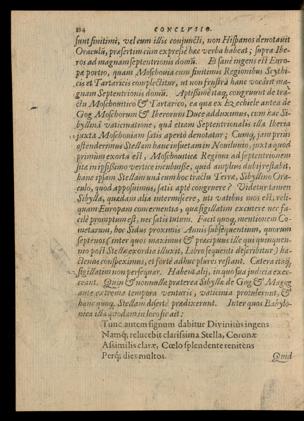 CONCLVSIO.
sunt finitimi, vel cum illis conjuncti, non Hispanos denotavit
Oraculum, præsertim cùm expressè hæc verba habeat; supra Ibe-
ros ad magnam septentrionis domū. Et sanè ingens est Euro-
pæ portio, quam Moschovia cum finitimis Regionibus Scythi-
cis et Tartaricis complectitur, ut non frustrà hanc vocârit ma-
gnam Septentrionis domū. Aptissimè itaq, congruunt de tra-
ctu Moschovitico & Tartarico, ea quæ ex Ezechiele antea de
Gog Moschorum & Iberorum Duce adduximus, cum hac Si-
byllina vaticinatione, quâ etiam Septentrionalis illa Iberia
juxta Moschoviam satis apertè denotatur; Cumq, jam prius
ostenderimus Stellam hanc insuetam in Novilunio, juxta quod
primùm exorta est, Moschovitica Regiona ad septentrionem
sita in ipsissimo vertice incubuisse, quid amplius dubij restabit,
hanc ipsam Stellam
culo, quod apposuimus, satis aptè congruere? Videtur tamen
Sibylla, quædam alia intermiscere, uti vatibus mos est, reli-
quam Europam concernentia; quæ sigillatim excutere nec fa-
cilè promptum est, nec satis tutum. Facit quoq, mentionem Co-
metarum, hoc Sidus proximis Annis subsequentium, quorum
septenos (inter quos maximus & præcipuus ille qui quinquen-
nio post Stellæ exordiū illuxit, Libro sequenti describitur) ha-
ctenus conspeximus, et fortè adhuc plures restant. Cætera itaq,
sigillatim non persequar. Habeat alij, in quo sua judicia exer-
ceant. Quin & nonnulla præterea Sibylla de Gog & Magog
ante extrema tempora venturis, vaticinia protulerunt, &
hanc quoq, Stellam disertè prædixerunt. Inter quos Babylo-
nica illa quodam in loco sic ait:
Tunc autem signum dabitur Divinitùs ingens
Namq, relucebit clarissima Stella, Coronæ
Assimilis claræ, Cœlo splendente renitens
Perq, dies multos.
Quid